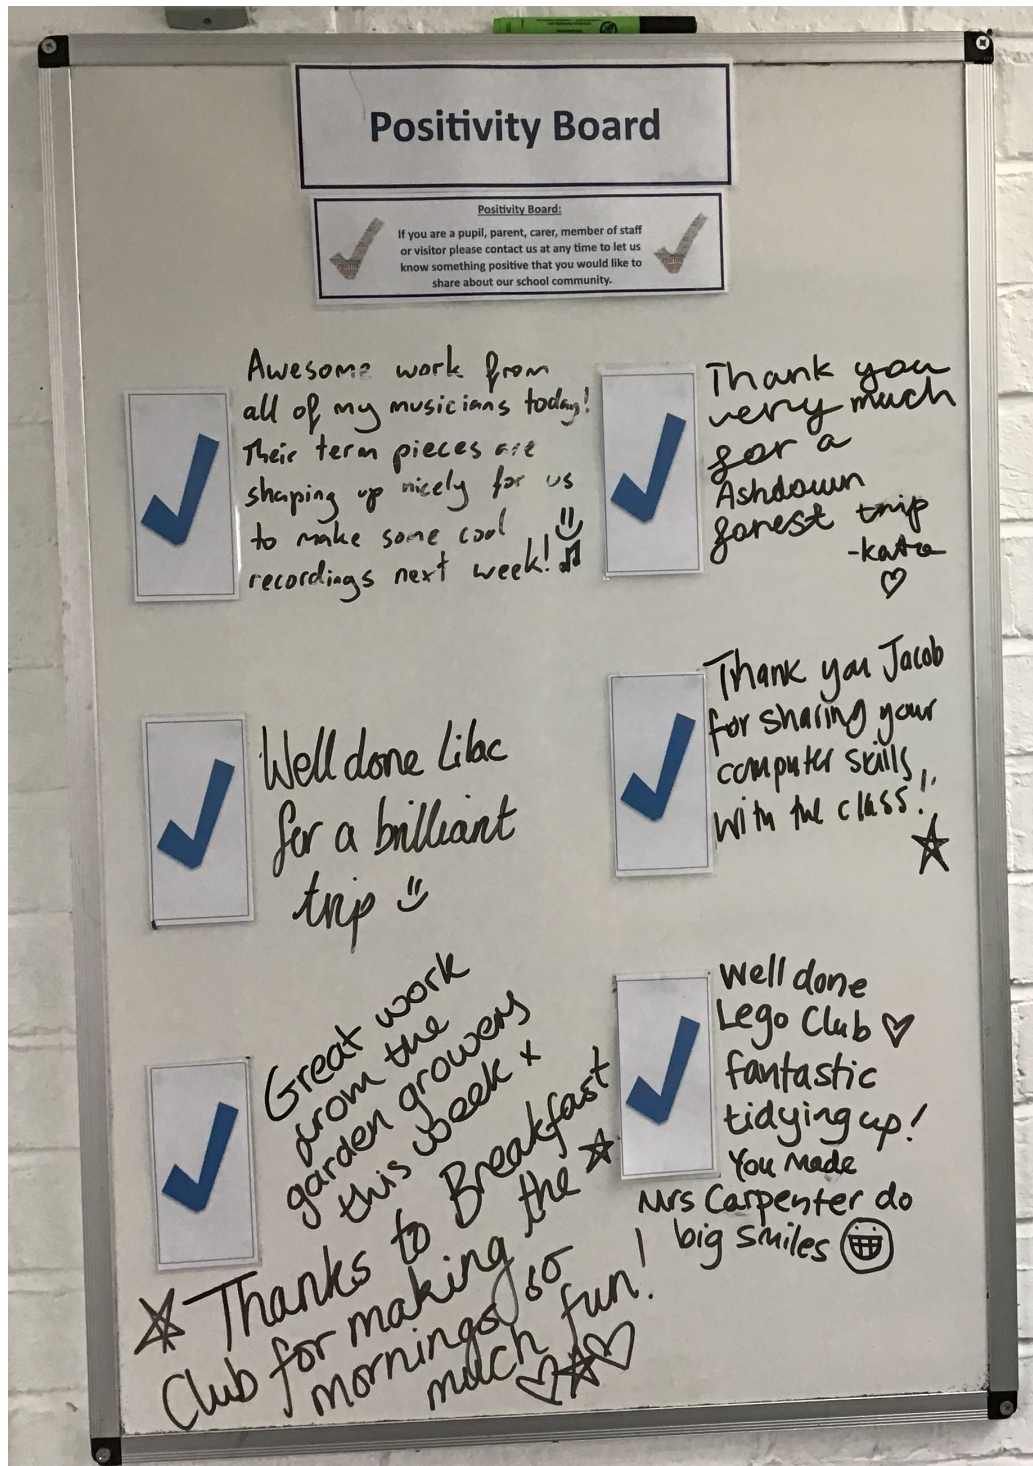 Positivity Board
Positivity Board:
If you are a pupil, parent, carer, member of staff
or visitor please contact us at any time to let us
know something positive that you would like to
share about our school community.
Awesome work from
all of my musicians today!
Their term pieces are
shaping up nicely for us
to make some cool
recordings next week!
Thank you
very much
for a
Ashdown
forest trip
-katie
Well done Lilac
for a brilliant
trip
Thank you Jacob
for sharing your
computer skills
with the class!!
Great work
from the
garden growers
this week x
Thanks to Breakfast
Club for making the
mornings so
much fun!
Well done
Lego Club
fantastic
tidying up!
You made
Mrs Carpenter do
big smiles